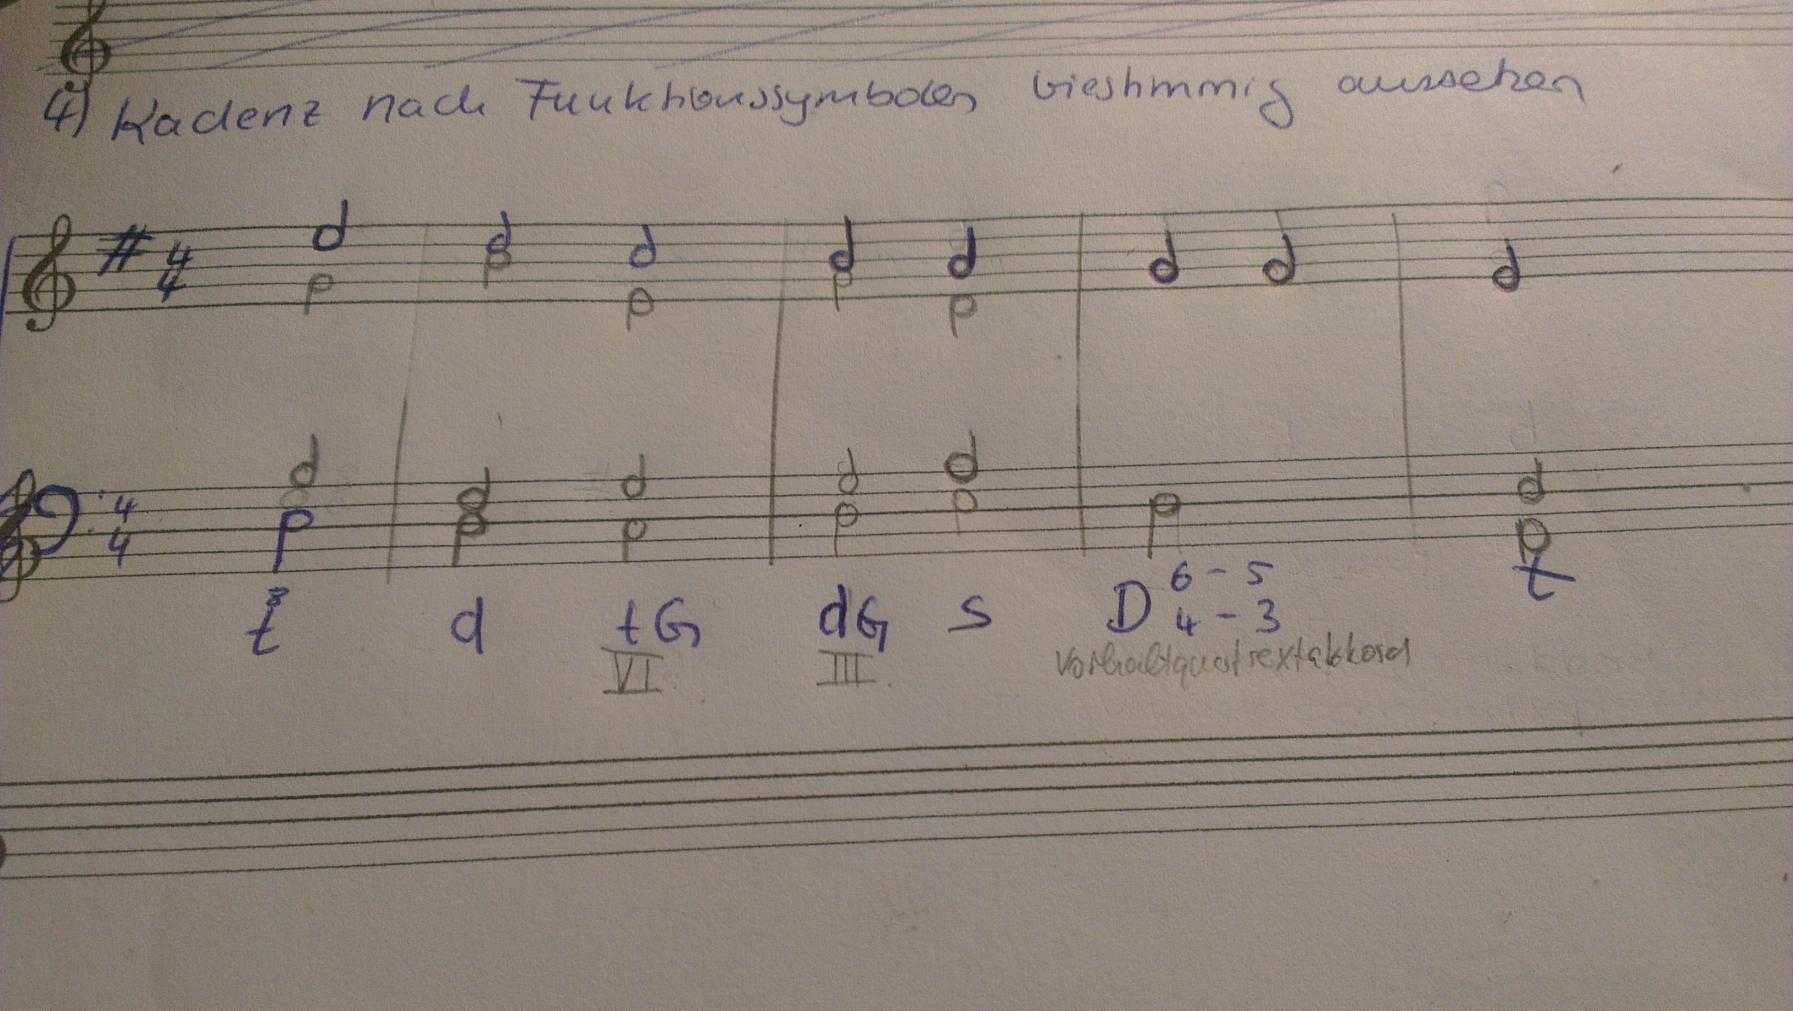 4) Kadenz nach Funktionssymbolen vierstimmig aussetzen
4
4
4
4
t d tG dG s D 6 - 5 t
4 - 3
VI III Vorhaltquartsextakkord